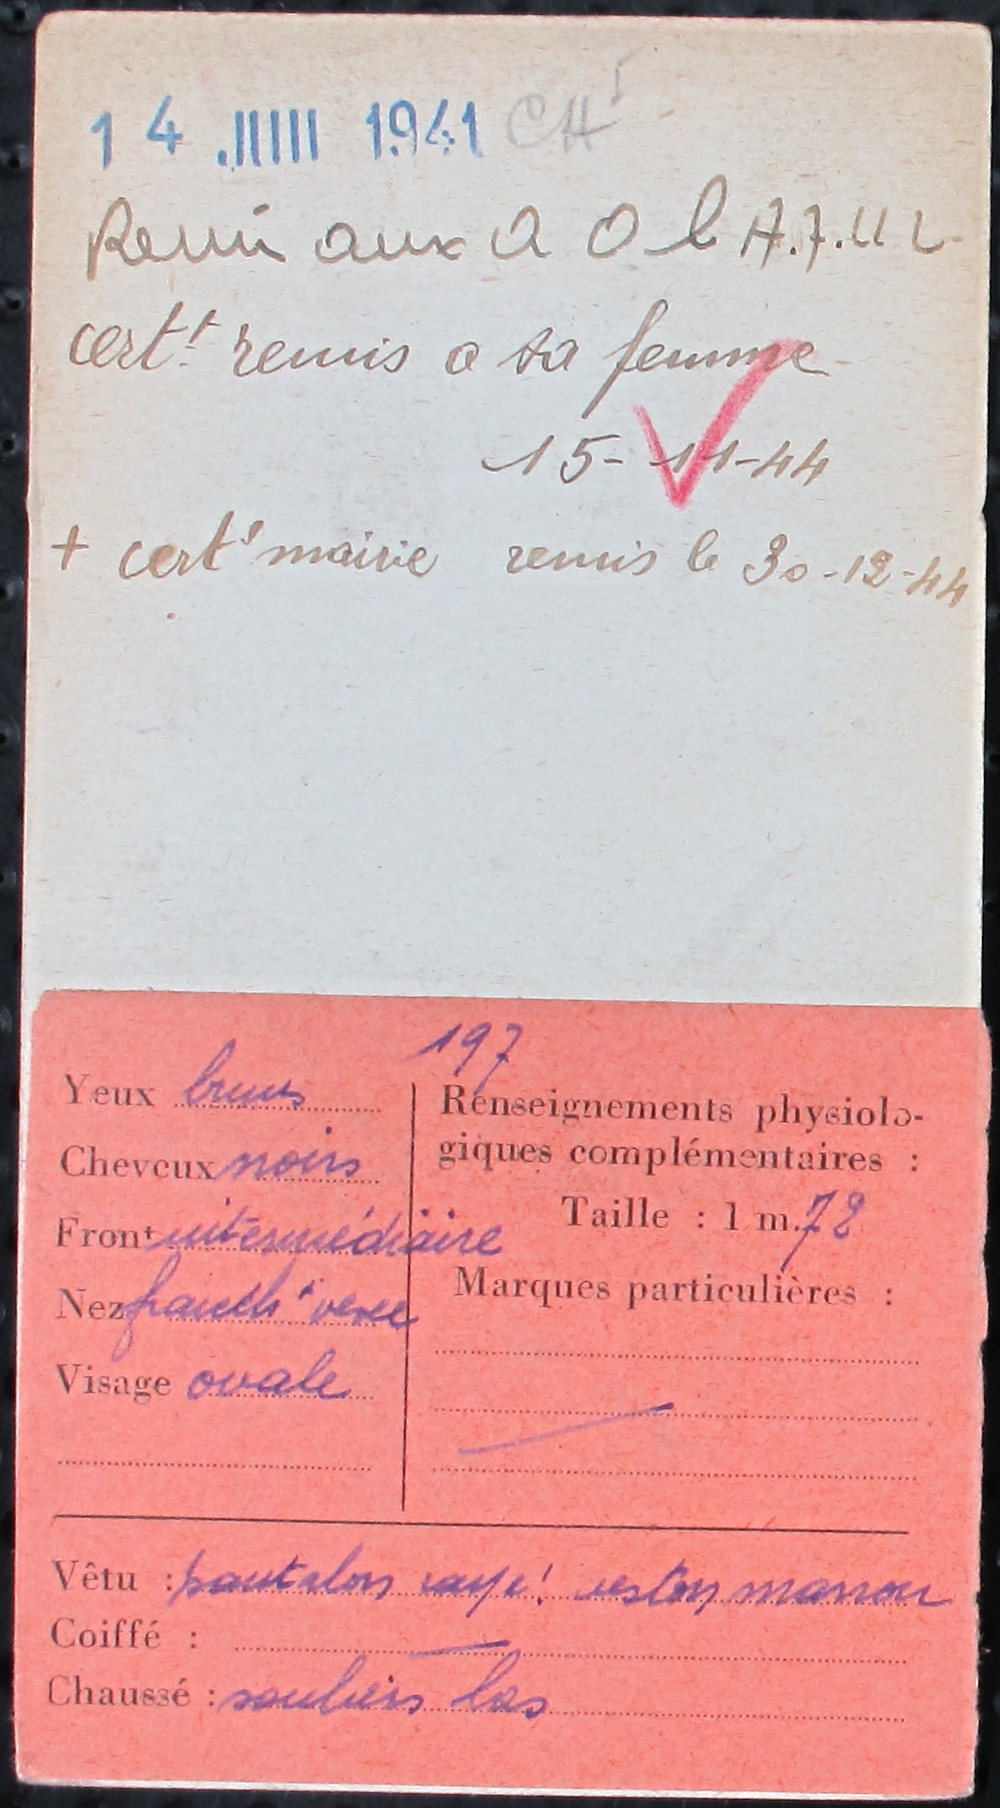 14 JUIN 1941 CH I
Remis aux A O le 17.7.42
certt remis a sa femme
15-11-44
+ certt mairie remis le 30-12-44
197
Yeux bruns
Cheveux noirs
Front intermédiaire
Nez
Visage ovale
Renseignements physiolo-
giques complémentaires :
Taille : 1 m. 72
Marques particulières :
Vêtu : pantalon rayé veston marron
Coiffé :
Chaussé : souliers bas